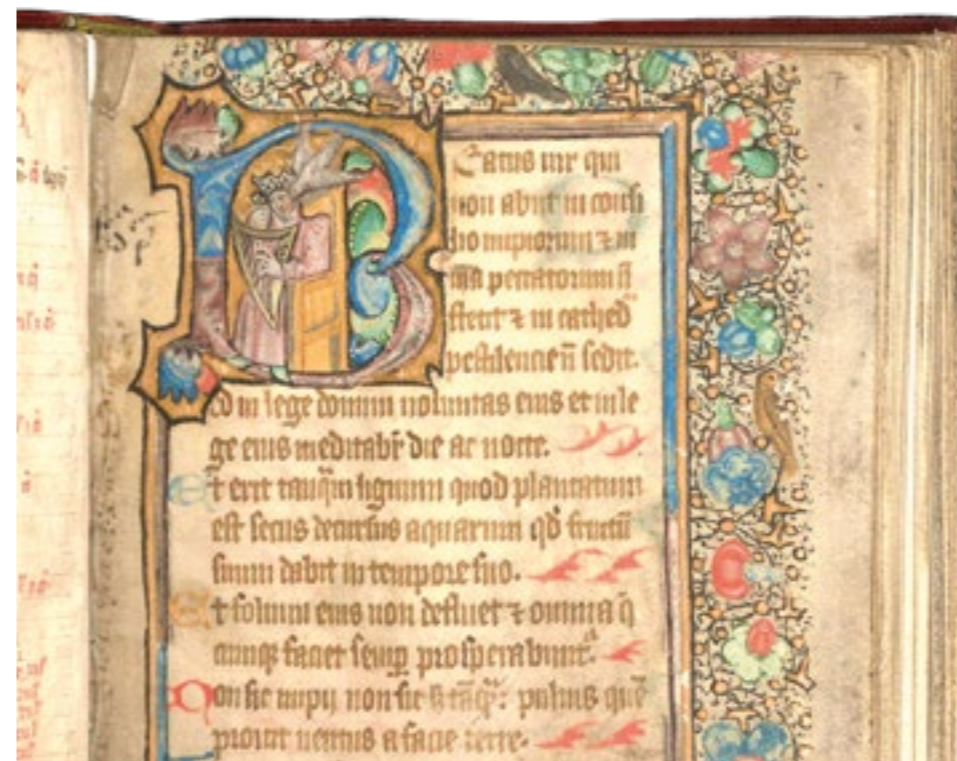 Beatus uir qui
non abijt in consi
lio impiorum ⁊ in
uia peccatorum nō
stetit ⁊ in cathed
pestilencie nō sedit.
Sed in lege domini uoluntas eius et in le
ge eius meditabr̄ die ac nocte.
Et erit tanq̄m lignum quod plantatum
est secus decursus aquarum qd̄ fructū
suum dabit in tempore suo.
Et folium eius non defluet ⁊ omnia q̄
cunqꝫ faciet semꝑ prosperabunt̄.
Non sic impij non sic s tāqꝫ puluis quē
proicit uentus a facie terre.